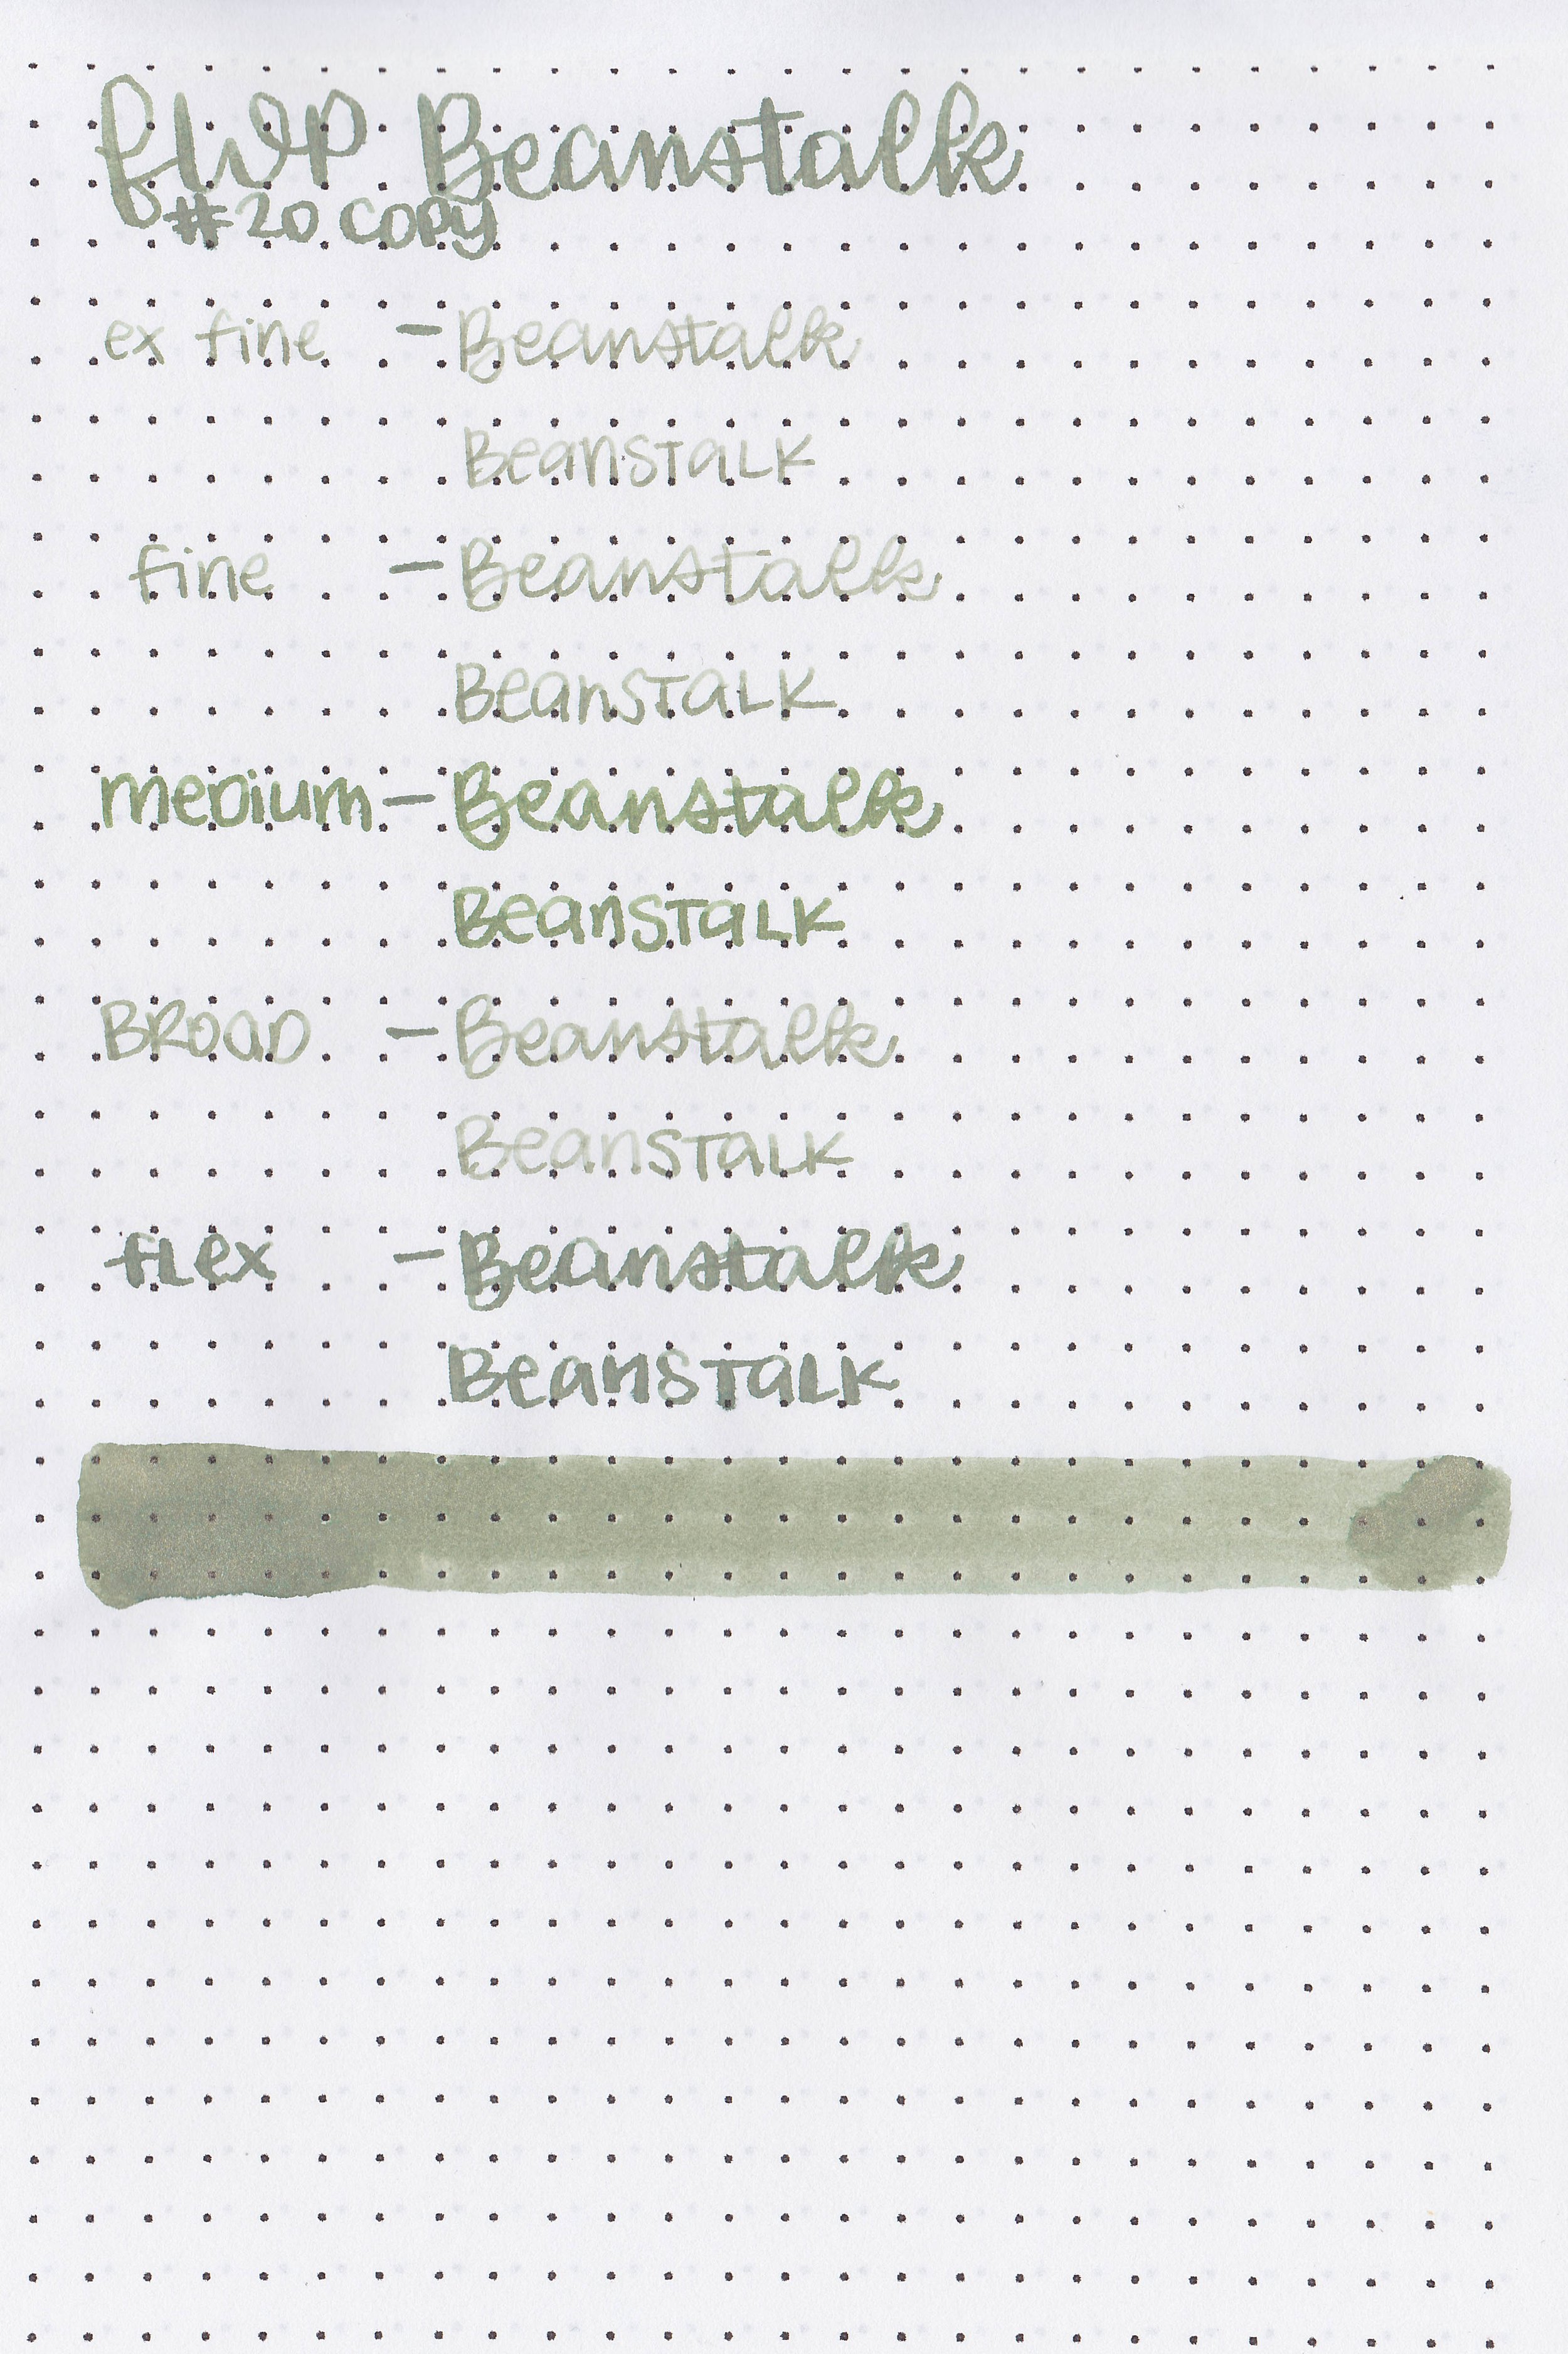 FWP Beanstalk
#20 COPY
ex fine - Beanstalk
BeansTaLK
fine - Beanstalk
BeansTaLK
meDium - Beanstalk
BeansTaLK
BROaD - Beanstalk
BeansTaLK
fLex - Beanstalk
BeansTaLK